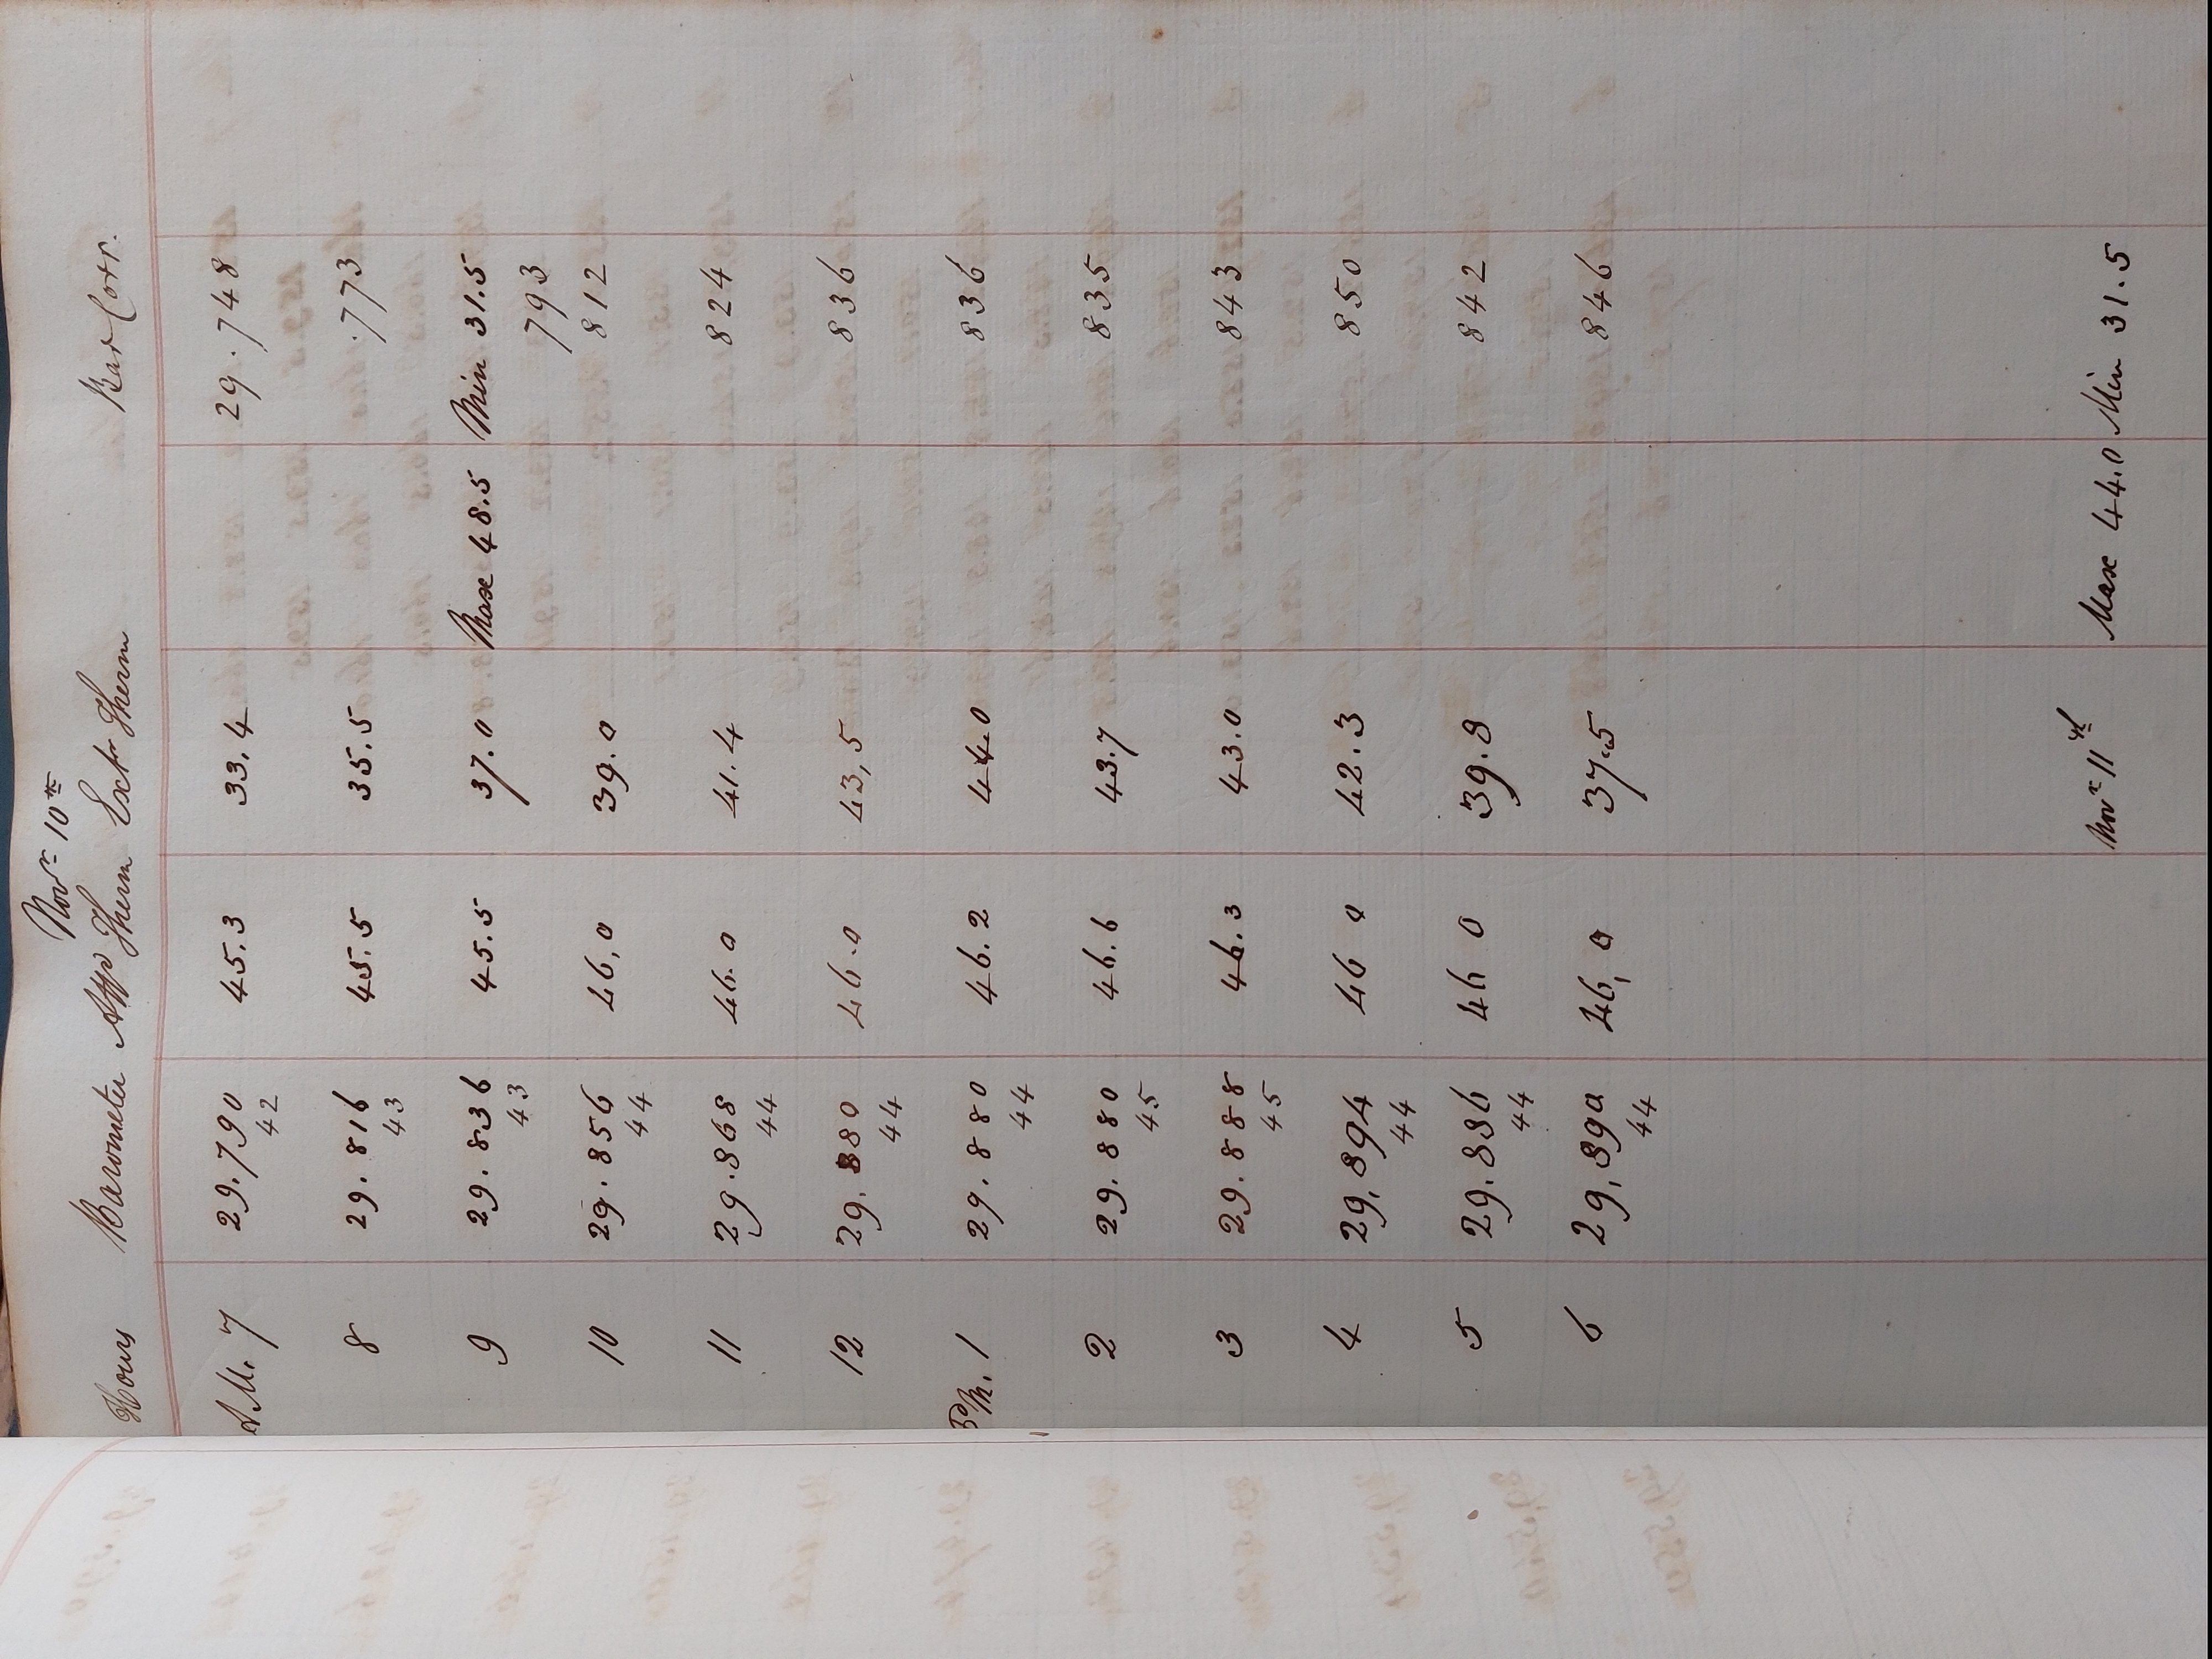 Novr 10th
Hours Barometer Attd Therm Extr Therm Bar Corr.
A.M. 7 29.790 45.3 33.4 29.748
42
8 29.816 45.5 35.5 .773
43
9 29.836 45.5 37.0 Max 48.5 Min 31.5
43 793
10 29.856 46,0 39.0 812
44
11 29.868 46.0 41.4 824
44
12 29.880 46.0 43,5 836
44
P.M. 1 29.880 46.2 44.0 836
44
2 29.880 46.6 43.7 835
45
3 29.888 46.3 43.0 843
45
4 29,894 46 0 42.3 850
44
5 29.886 46 0 39.8 842
44
6 29,890 46,0 37.5 846
44
Novr 11th Max 44.0 Min 31.5